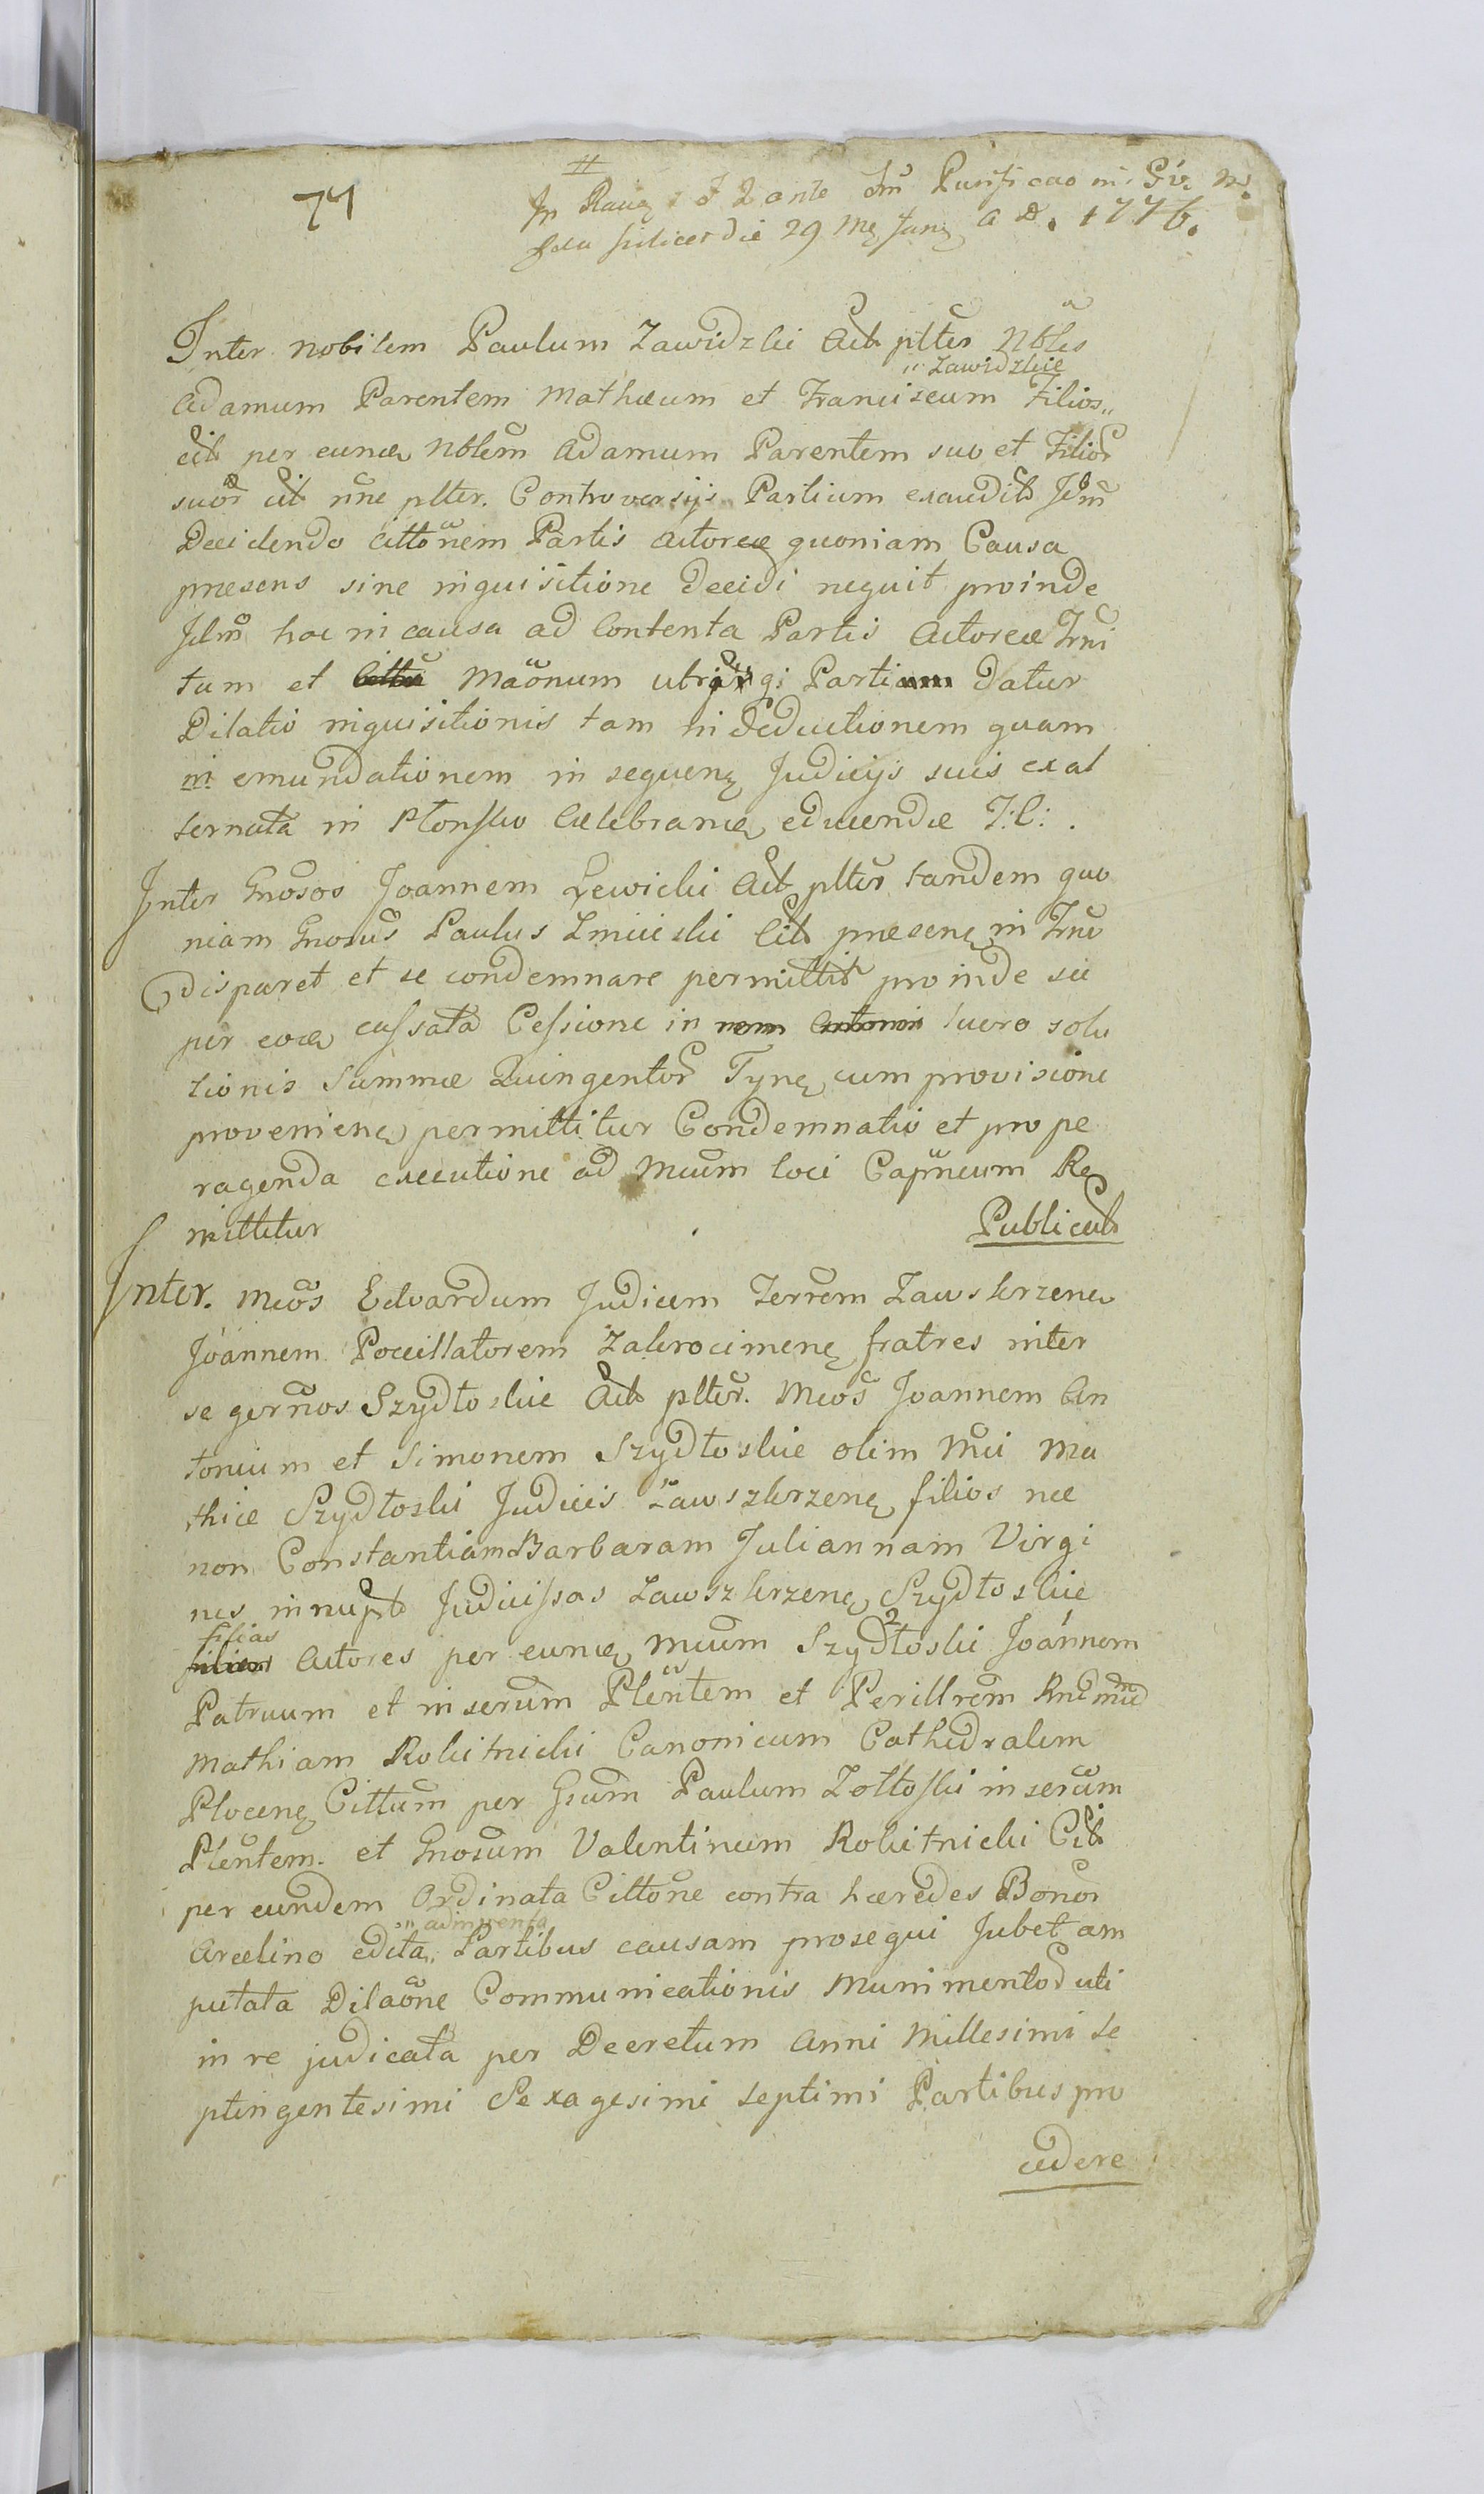 77
29 Jan A D. 1776.
Inter Nobilem Paulum Zawidzki Act plter Nbles
"Zawidzkie
Adamum Parentem Mathæum et Franciscum Filios"
cit per eund Nblem Adamum Parentem suo et Filior
suor cit nne plter. Controversijs Partium exaudit Jdm
Decidendo cittonem Partis Actoreæ quoniam Causa
præsens sine inquisitione decidi nequit proinde
Jdm hoc in causa ad Contenta Partis Actoreæ Trni
tum et Maonum Parti datur
Dilatio inquisitionis tam in deductionem quam
in emundationem in sequen Judicijs suis ex al
ternata in Płonsko Celebran educendæ J:C:.
Inter Gnosos Joannem Lewicki Act plter tandem quo
niam Gnosus Paulus Cit præsen in Trno
disparet et se condemnare permittit proinde su
per eod cassata Cessione in lucro solu
tionis Summæ Quingentor Tyn cum provisione
provenien permittitur Condemnatio et pro pe
ragenda executione ad Mcum loci Capneum Re
mittitur
Publicat
Inter. Mcos Edvardum Judicem Terrem Zawskrzen
Joannem Pocillatorem Zakrocimen fratres inter
se gernos Szydłoskie Act plter. Mcos Joannem An
tonium et Simonem Szydłoskie olim Mci Ma
thiæ Szydłoski Judicis Zawszkrzen filios nec
non Constantiam Barbaram Juliannam Virgi
nes innupt Judicissas Zawszkrzen Szydłoskie
filias
Actores per eund Mcum Szydłoski Joannem
Patruum et inserum Plentem et Perillrem Rndum
Mathiam Rokitnicki Canonicum Cathedralem
Plocen Cittum per Gsum Paulum Żołtoski inserum
Plentem. et Gnosum Valentinum Rokitnicki Cit
per eundem Ordinata Cittone contra hæredes Bonor
"adinventa
Arcelino edita" Partibus causam prosequi Jubet am
putata Dilaone Communicationis Munimentor uti
in re judicata per Decretum Anni Millesimi Se
ptingentesimi Sexagesimi Septimi Partibus pro
cedere